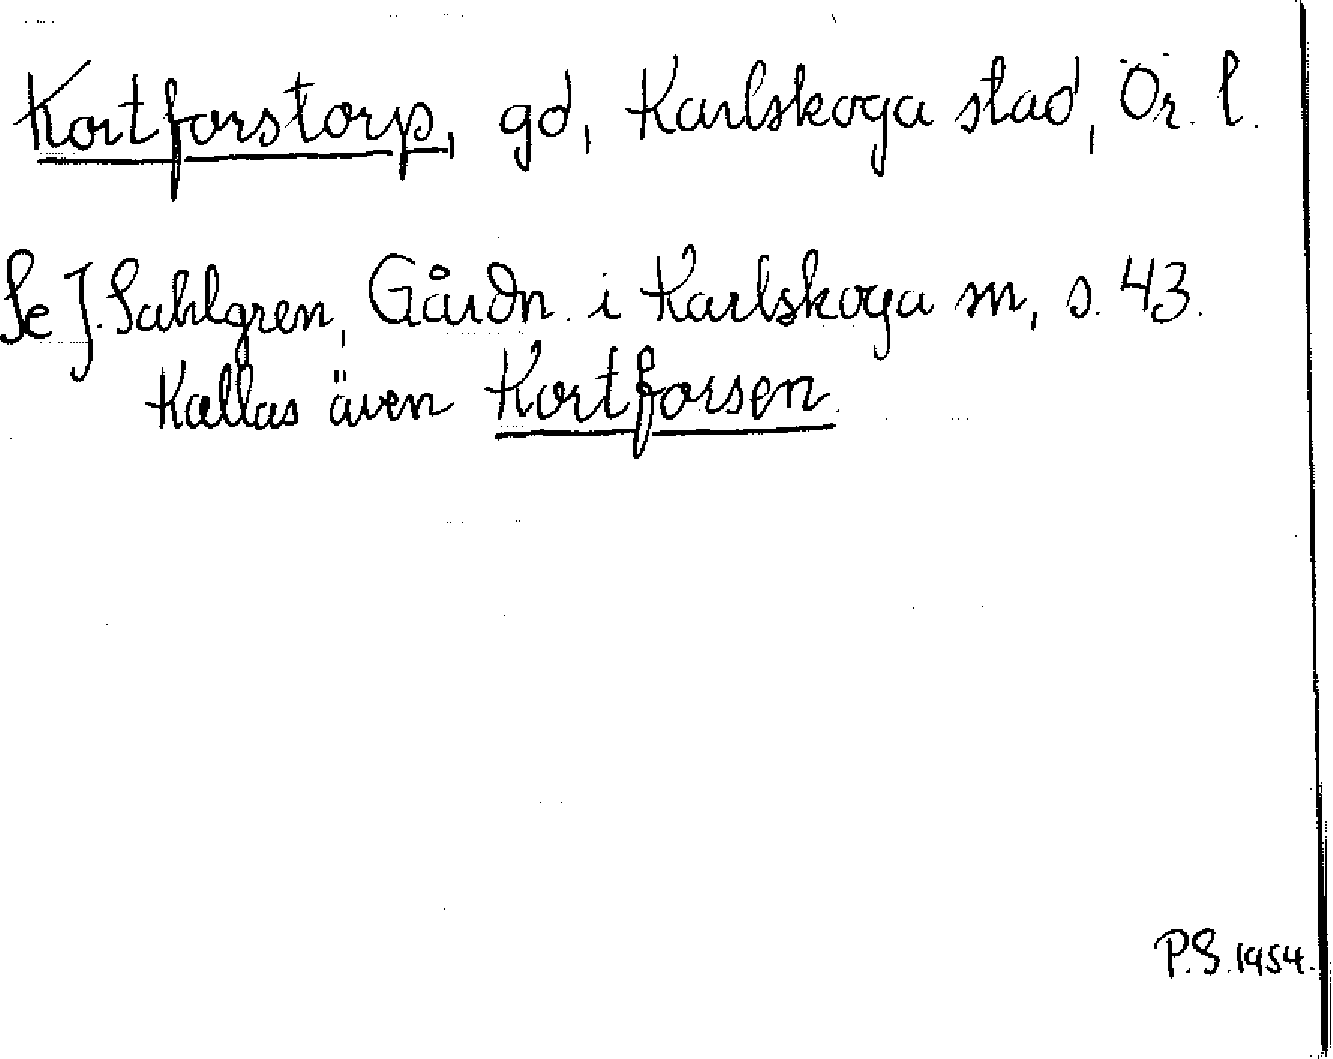 Kortforstorp, gd, Karlskoga stad, Ör. l.
Se J. Sahlgren, Gårdn. i Karlskoga sn, s. 43.
Kallas även Kortforsen.
P.S. 1954.